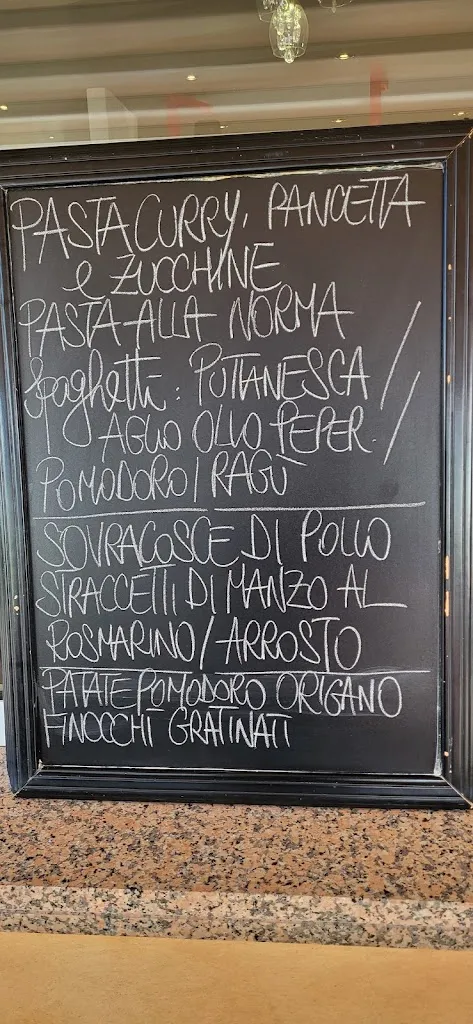 PASTA CURRY, PANCETTA
e ZUCCHINE
PASTA ALLA NORMA
Spaghetti: PUTTANESCA /
AGLIO OLIO PEPER. /
POMODORO / RAGÙ
SOVRACOSCE DI POLLO
STRACCETTI DI MANZO AL
ROSMARINO / ARROSTO
PATATE POMODORO ORIGANO
FINOCCHI GRATINATI